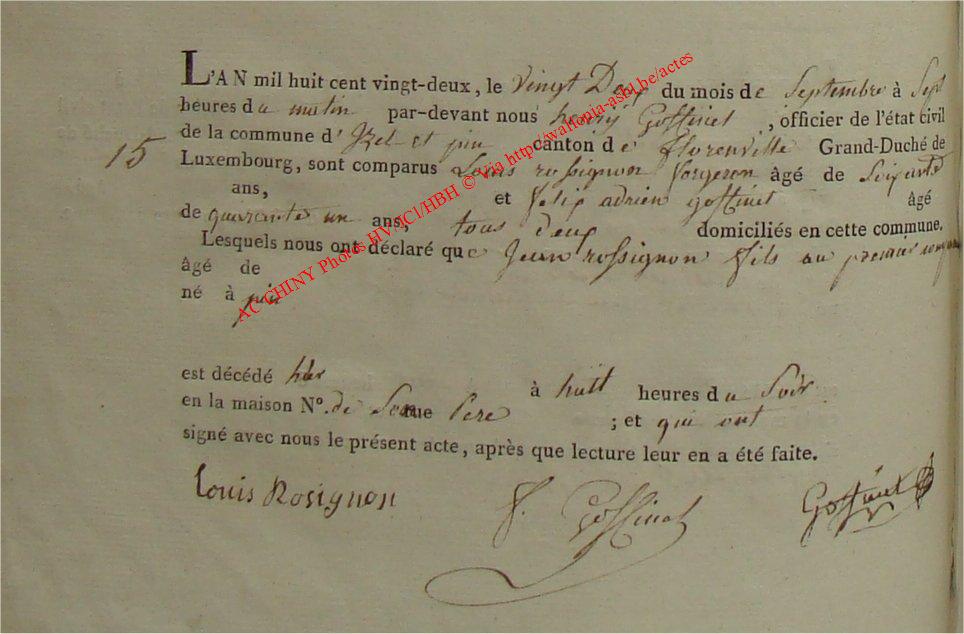 L'AN mil huit cent vingt-deux, le Vingt Deux du mois de Septembre à Sept
heures du matin par-devant nous henry Goffinet, officier de l'état civil
15
de la commune d' Izel et pin canton de florenville Grand-Duché de
Luxembourg, sont comparus Louis rossignon forgeron âgé de Soixante
ans, et felix adrien goffinet âgé
de quarante un ans, tous deux domiciliés en cette commune.
Lesquels nous ont déclaré que Jean rossignon fils au premier
âgé de
né à pin
est décédé hier à huit heures du Soir
en la maison N°. de Son rue Pere ; et qui ont
signé avec nous le présent acte, après que lecture leur en a été faite.
Louis Rosignon F. Goffinet Goffinet
AC CHINY Photos HV/JCI/HBH © Via http://wallonia-asbl.be/actes